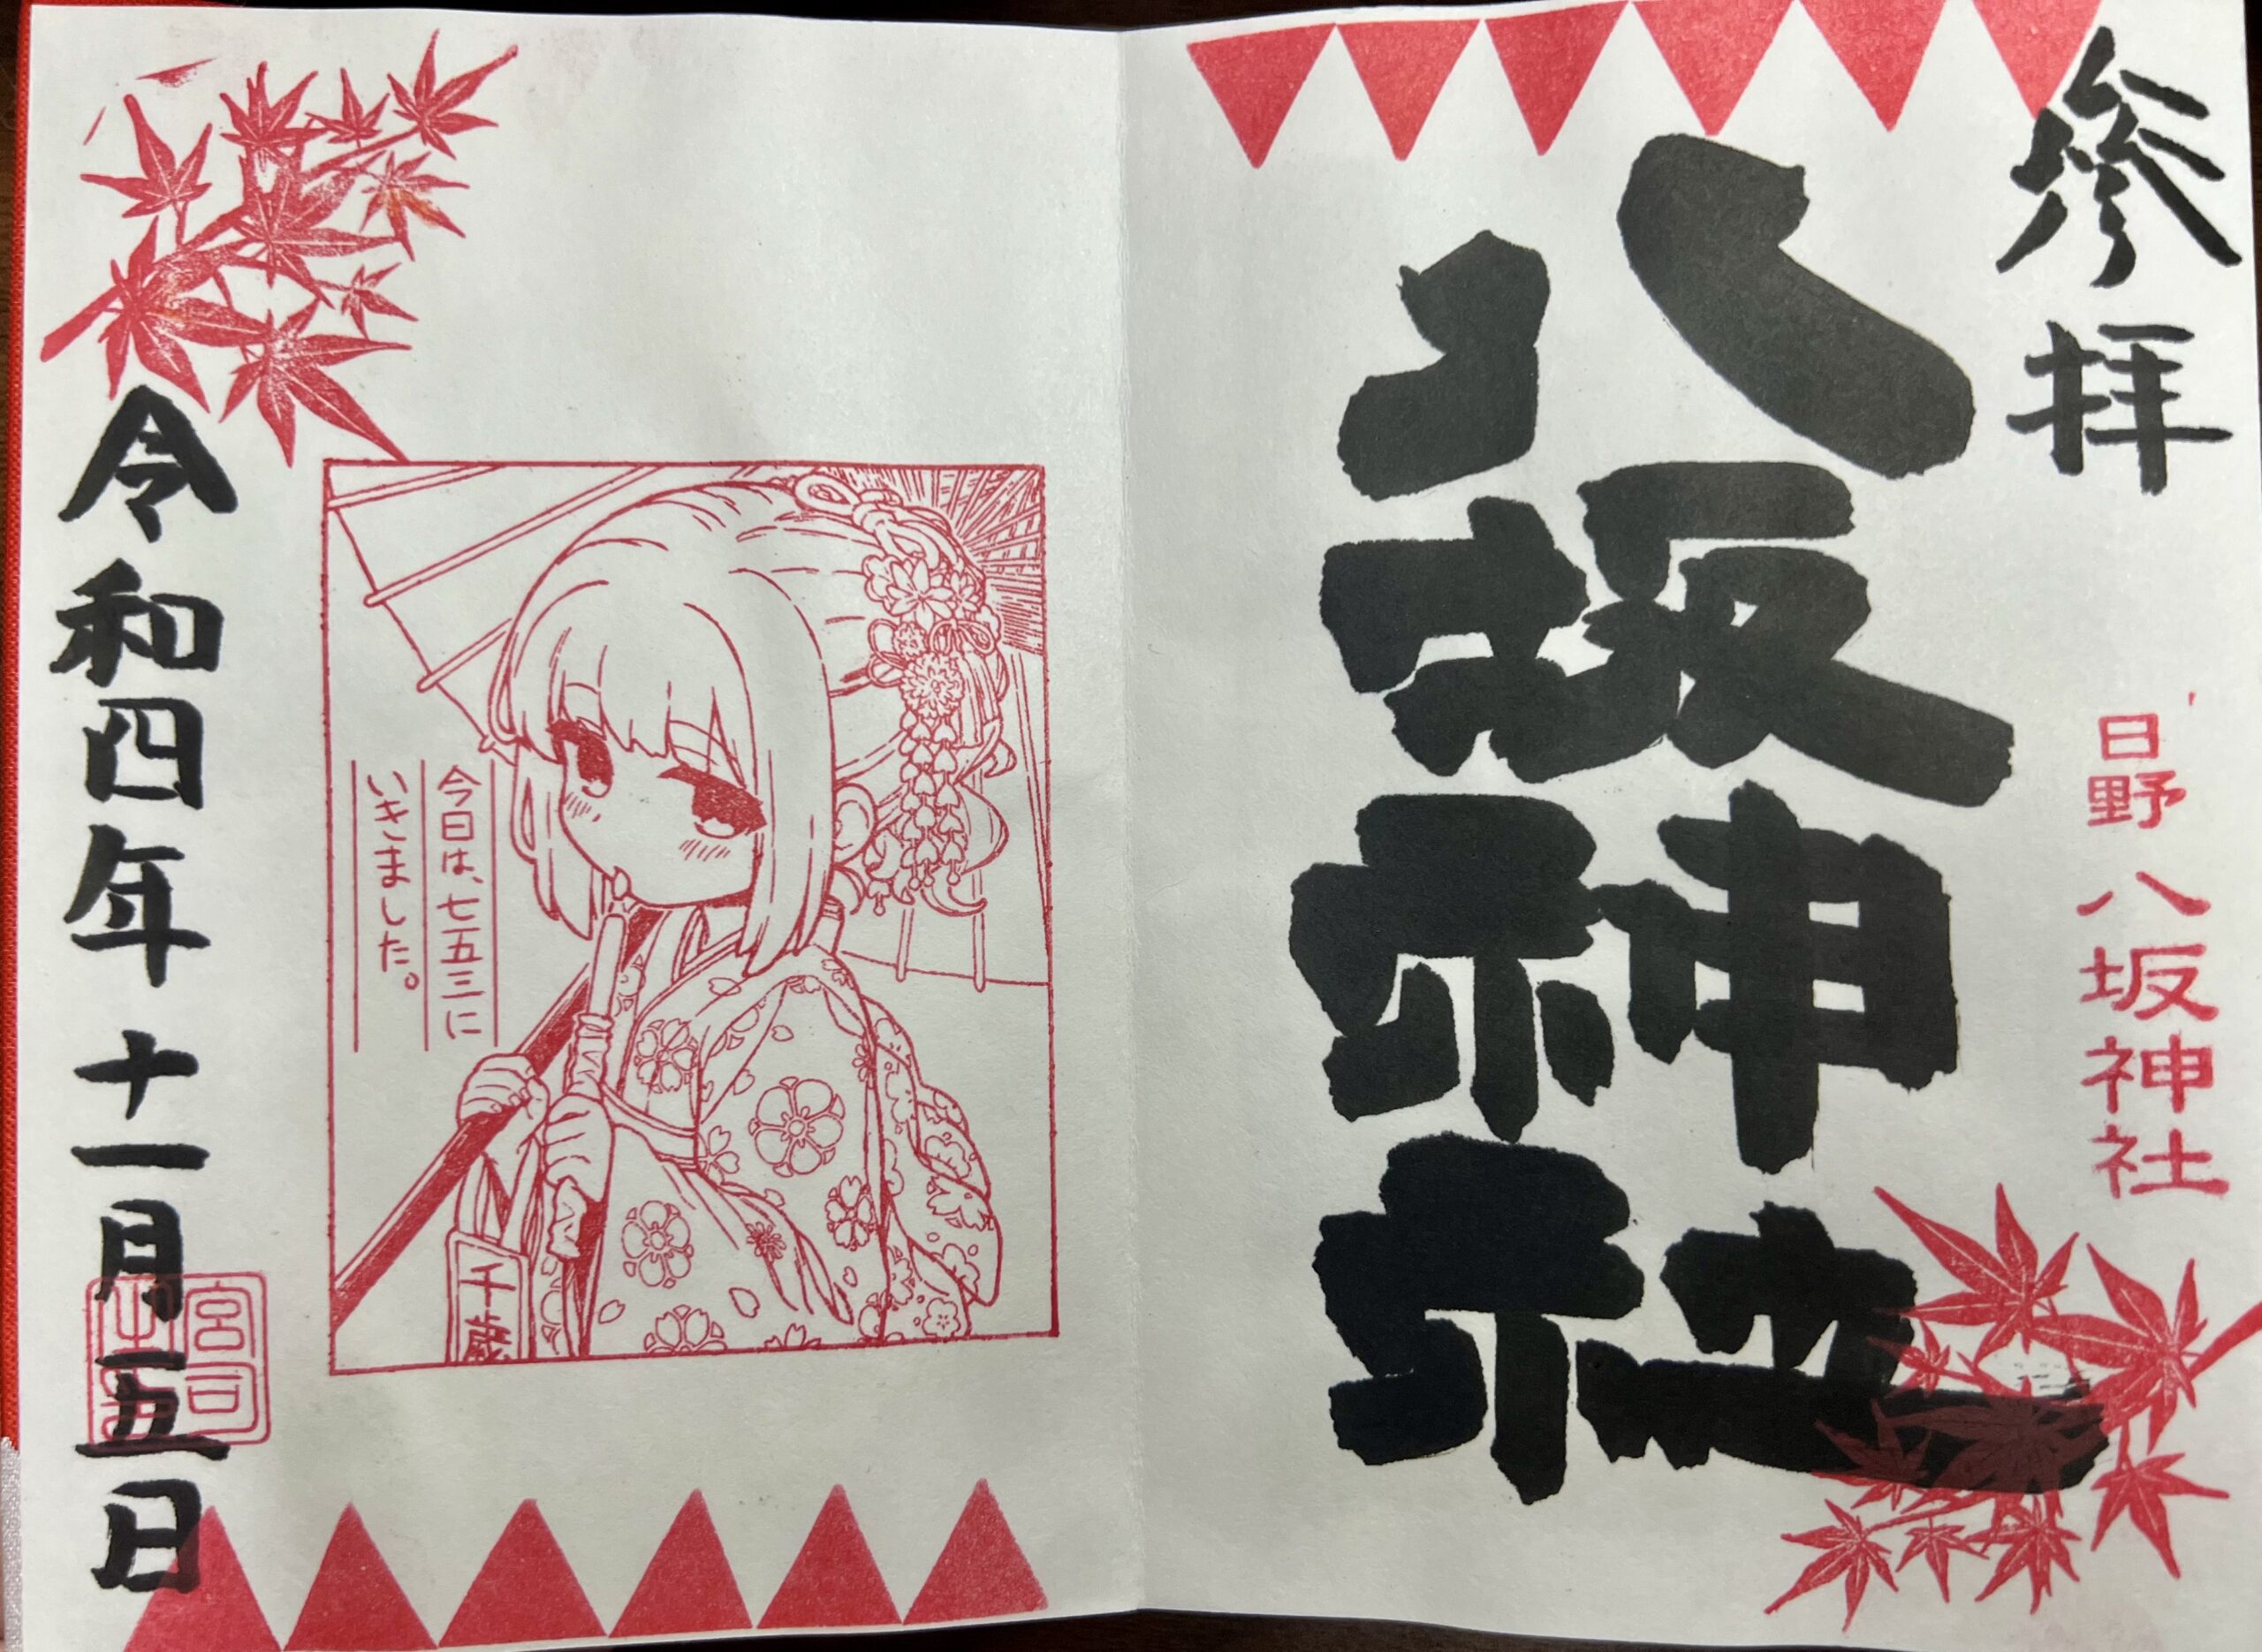 参拝
日野 八坂神社
八坂神社
今日は、七五三に
いきました。
千歳
令和四年十一月十五日
宮司
之印